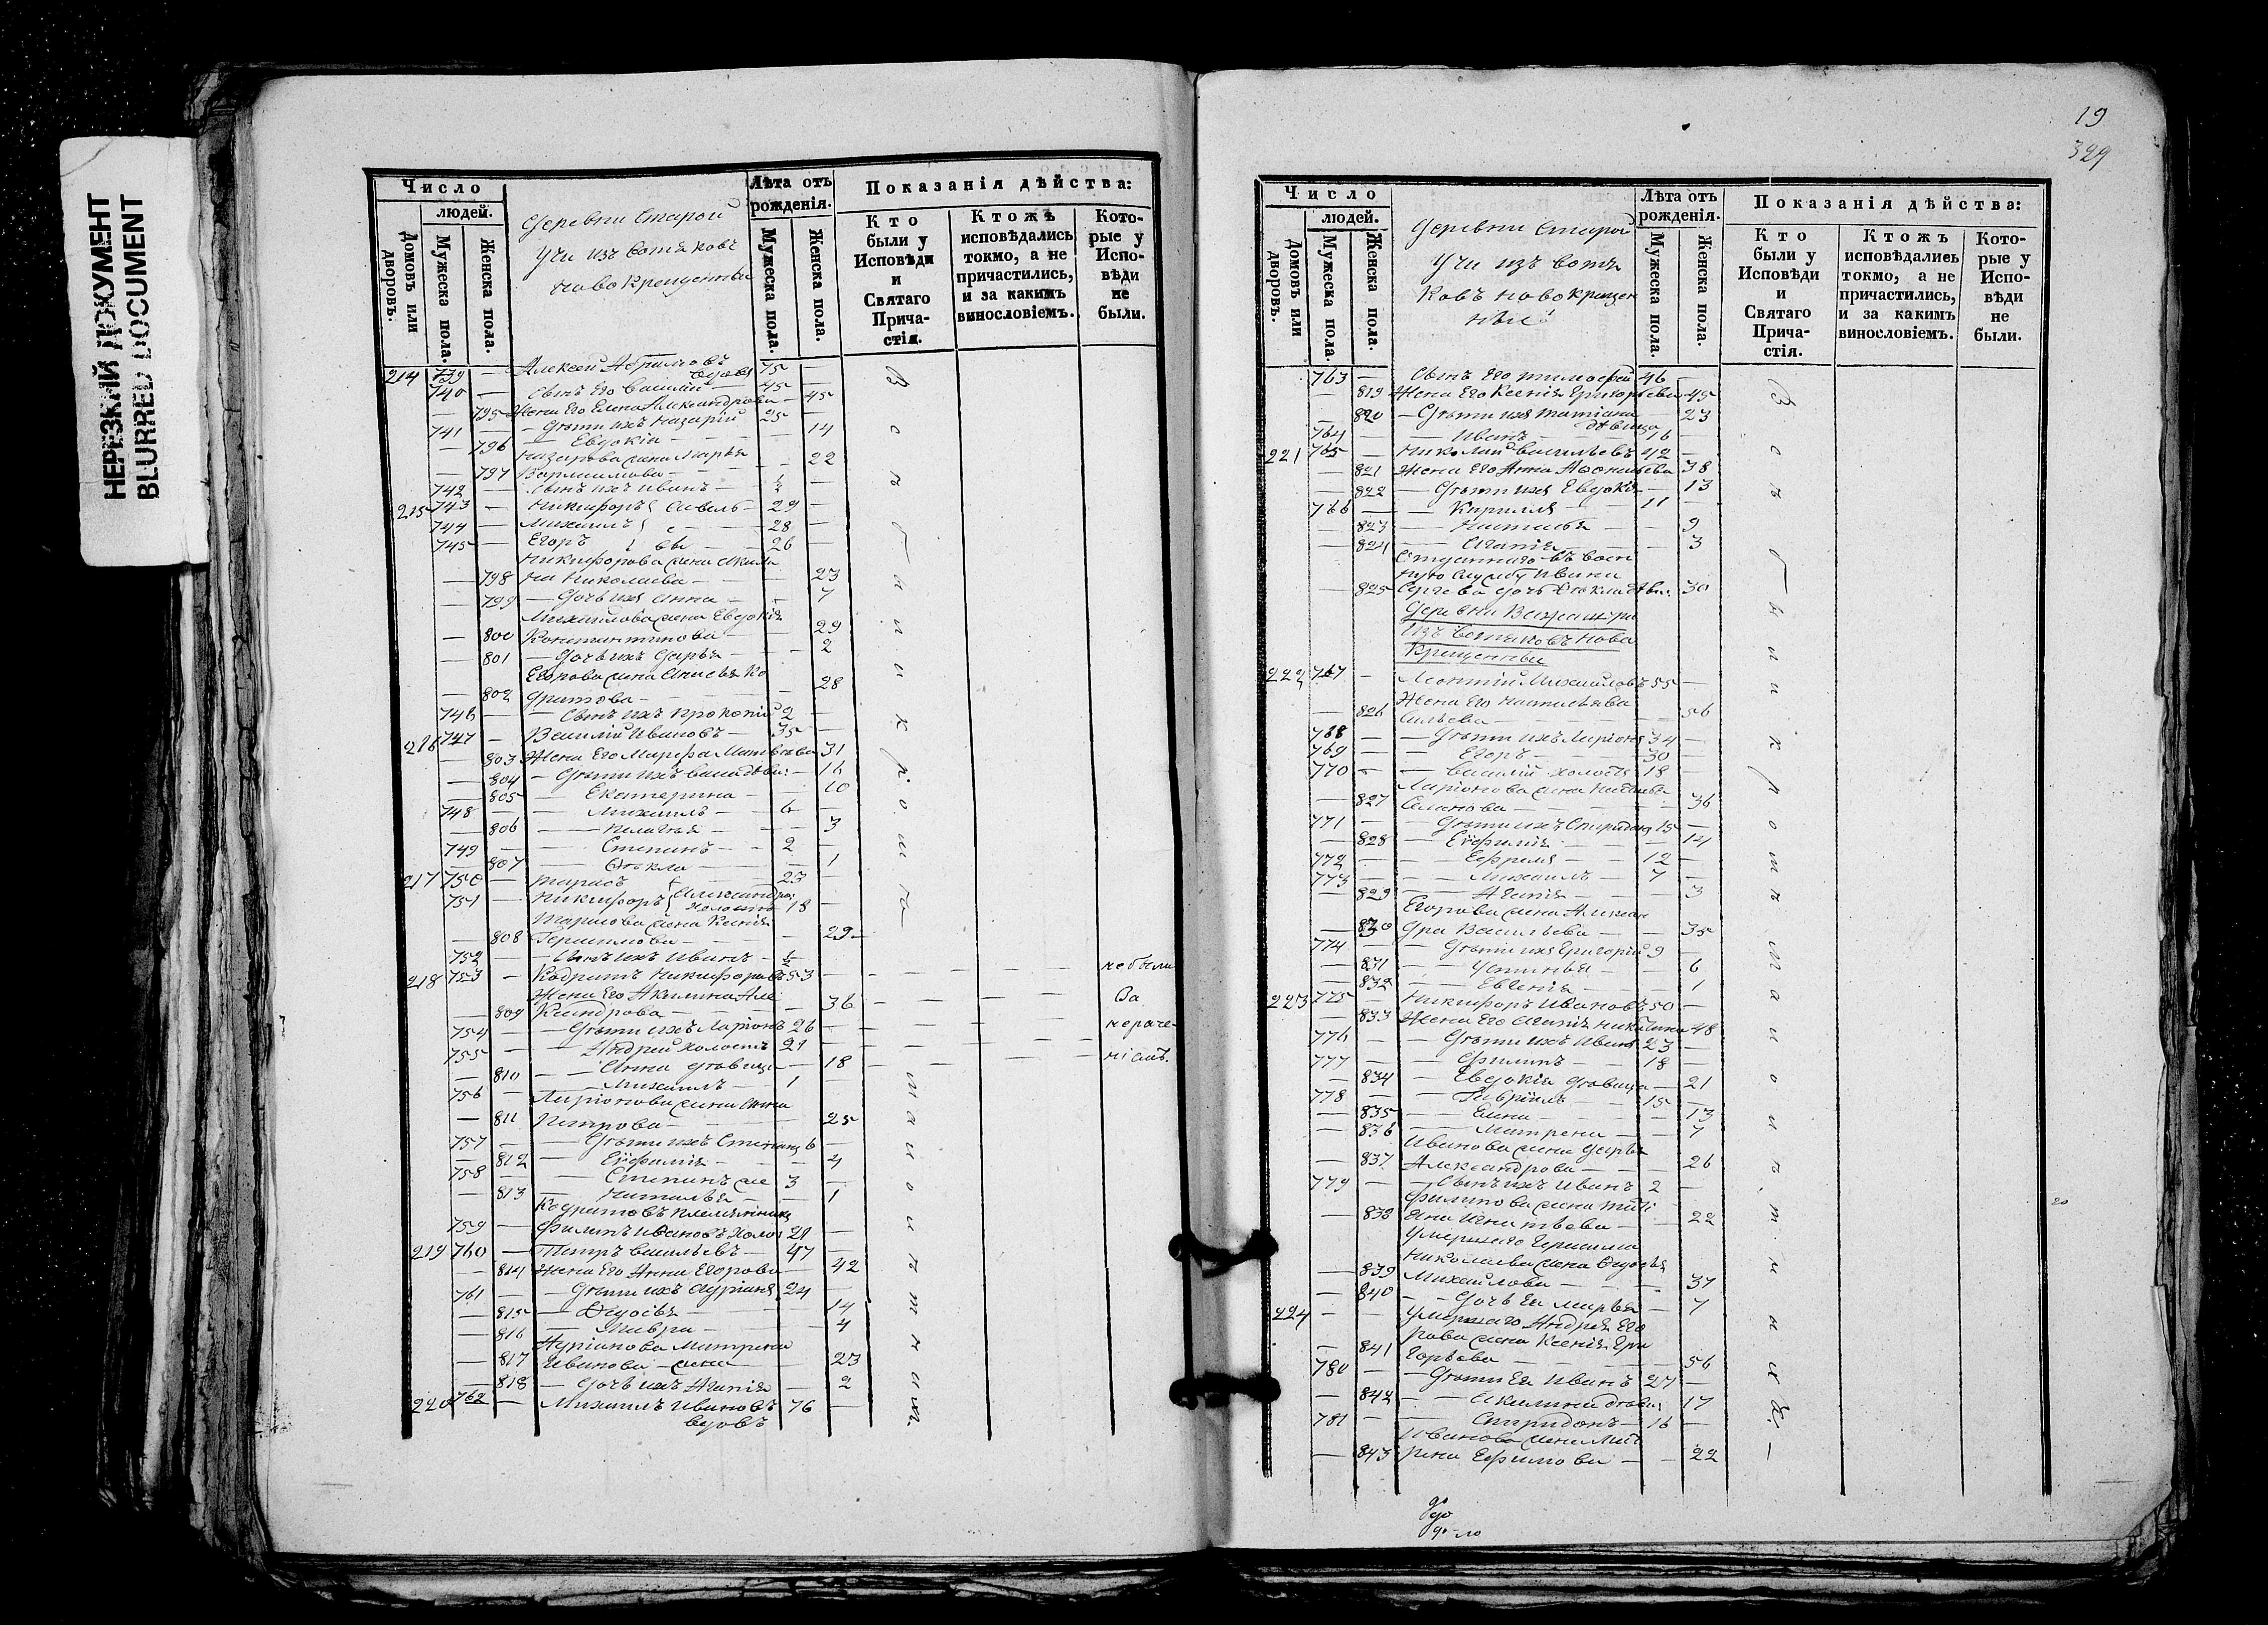 НЕРЕЗКИЙ ДОКУМЕНТ
BLURRED DOCUMENT
Число
людей.
Домовъ или дворовъ.
Мужеска пола.
Женска пола.
Деревни Старой
Учи изъ вотяковъ
новокрещенныи
Лѣта отъ рожденія.
Мужеска пола.
Женска пола.
Показанія дѣйства:
Кто были у Исповѣди и Святаго Прича-стія.
Ктожъ исповѣдались токмо, а не причастились, и за какимъ винословіемъ.
Кото-рые у Испо-вѣди не были.
214 739 — Алексей Абрамовъ 75 —
вдовъ
740 — Сынъ Его Василий — 45 —
— 795 Жена Его Елена Александрова — 45
741 — — Дѣти ихъ Назарій 25 —
— 796 — Евдокіа — — 14
Назарова жена Марья
— 797 — — 22
742 — Сынъ ихъ Иванъ — 1/2 —
215 743 — Никифоръ Савель- 29 —
744 — Михаилъ е — 28 —
745 — Егоръ вы — 26 —
Никифорова жена Акили
— 798 на Николаева — 23
— 799 — Дочь ихъ Анна — 7
Михайлова жена Евдокія
— 800 Константинова — 29
— 801 — Дочь ихъ Дарья — 2
Егорова жена Анисья Ко
— 802 дратова — 28
746 — — Сынъ ихъ Прокопій 2 —
216 747 — Василій Ивановъ — 35 —
— 803 Жена Его Марфа Матвѣева 31
— 804 — Дѣти ихъ дѣви: — 16
— 805 — Екатерина — — 10
748 — Михаилъ — 6 —
— 806 — Пелагія — — 3
749 — — Степанъ — 2 —
— 807 — Ѳекла — — 1
217 750 — Тарасъ — 23 —
751 — Никифоръ Александро: 18 —
холостъ
Тарасова жена Ксенія
— 808 Герасимова — — 29 —
752 — — Сынъ ихъ Иванъ — 1/2
218 753 — Кодратъ Никифоровъ 53 — — — — не были
Жена Его Акилина Але
— 809 ксандрова — — 36 — — — — За
754 — — Дѣти ихъ Ларіонъ 26 — — — — нераче-
755 — — Андрей холостъ 21 — — — —
— 810 — Анна дѣвица — 18 — — — — ніемъ.
756 — — Михаилъ — 1 —
Ларіонова жена Анна
— 811 Петрова — — 25
757 — — Дѣти ихъ Степанъ 6 —
— 812 — Еѵфимія — — 4
758 — — Степанъ же 3 —
— 813 — Наталья — — 1
Кодратовъ племянникъ
759 — Филипъ Ивановъ холос 21 —
219 760 — Петръ Васильевъ — 47 —
— 814 Жена Его Анна Егорова — 42
761 — — Дѣти ихъ Адріанъ 24 —
— 815 — Ѳедосья — — 14
— 816 — Мавра — — 4
Адріанова Матрена
— 817 Иванова — жена — 23
— 818 — Дочь ихъ Агапія — 2
220 762 — Михаилъ Ивановъ 76 —
вдовъ
19
329
Число
людей.
Домовъ или дворовъ.
Мужеска пола.
Женска пола.
Деревни Старой
Учи изъ вотя
ковъ новокрещен
ныи
Лѣта отъ рожденія.
Мужеска пола.
Женска пола.
Показанія дѣйства:
Кто были у Исповѣди и Святаго Прича-стія.
Ктожъ исповѣдались токмо, а не причастились, и за какимъ винословіемъ.
Кото-рые у Испо-вѣди не были.
763 — Сынъ Его Тимофей 46 —
— 819 Жена Его Ксенія Григорьева 45
— 820 — Дѣти ихъ Татіана 23
дѣвица
764 — — Иванъ — 16 —
221 765 — Николай Васильевъ 42 —
— 821 Жена Его Анна 38
— 822 — Дѣти ихъ Евдокія — 13
766 — — Кирилъ — 11 —
— 823 — Наталья — — 9
— 824 — Агапія — — 3
Отданнаго въ воен
ную службу Ивана
— 825 Сергѣева дочь Ѳекла дѣви: 30
Деревни
Изъ вотяковъ ново
крещенныи
222 767 — Леонтій Михайловъ 55 —
Жена Его Наталья Ва
— 826 сильева — — 56
768 — — Дѣти ихъ Ларіонъ 34 —
769 — — Егоръ — 30 —
770 — — Василій холостъ 18 —
Ларіонова жена Наталья
— 827 — — 36
771 — — Дѣти ихъ Спиридонъ 15 —
— 828 — Еѵфимія — — 14
772 — — Ефремъ — 12 —
773 — — Михаилъ — 7 —
— 829 — Агапія — — 3
Егорова жена Алексан
— 830 дра Васильева — — 35
774 — — Дѣти ихъ Григорій 9 —
— 831 — Устинья — — 6
— 832 — Евгенія — — 1
223 775 — Никифоръ Ивановъ 50 —
— 833 Жена Его Агапія Никитина 48
776 — — Дѣти ихъ Иванъ 23 —
777 — — Филипъ — 18 —
— 834 — Евдокія дѣвица — 21
778 — — Гавріилъ — 15 —
— 835 — Елена — — 13
— 836 — Матрена — — 7
Иванова жена Дарья
— 837 Александрова — — 26
779 — — Сынъ ихъ Иванъ 2 —
Филипова жена Тати
— 838 яна Игнатьева — — 22
Умершаго Герасима
Николаева жена Ѳедосья
— 839 Михайлова — — 37
— 840 — Дочь Ея Марья — 7
224 — — Умершаго Андрея Его
рова жена Ксенія Гри
— 841 горьева — — 56
780 — — Дѣти Ея Иванъ 27 —
— 842 — Акилина дѣвиц 17
781 — — Спиридонъ — 16 —
Иванова жена Мат
— 843 рена Ефимова — — 22
20